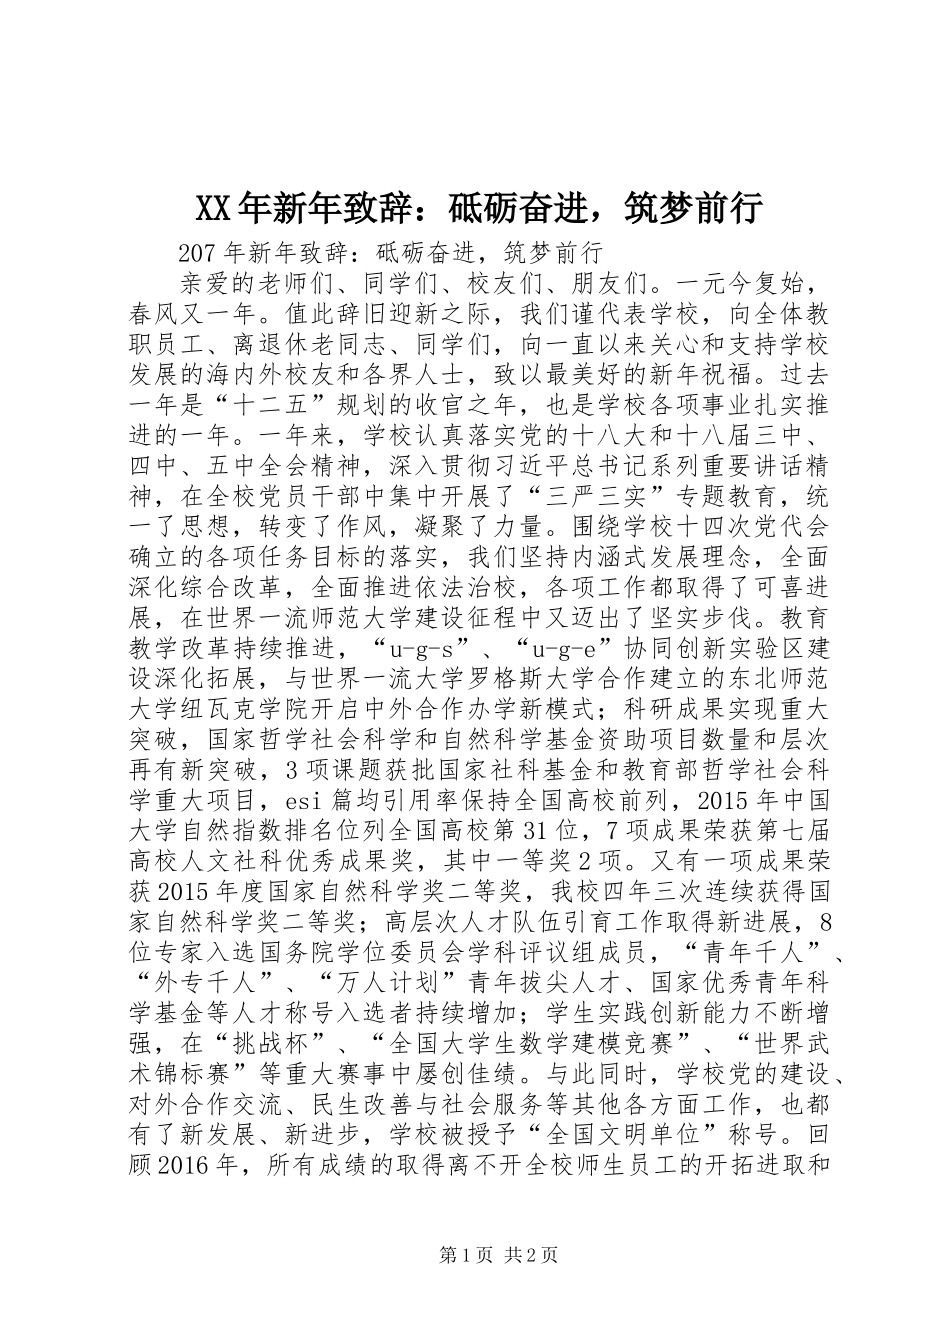 XX年新年致辞：砥砺奋进，筑梦前行
207 年新年致辞：砥砺奋进，筑梦前行
亲爱的老师们、同学们、校友们、朋友们。一元今复始，
春风又一年。值此辞旧迎新之际，我们谨代表学校，向全体教
职员工、离退休老同志、同学们，向一直以来关心和支持学校
发展的海内外校友和各界人士，致以最美好的新年祝福。过去
一年是“十二五”规划的收官之年，也是学校各项事业扎实推
进的一年。一年来，学校认真落实党的十八大和十八届三中、
四中、五中全会精神，深入贯彻习近平总书记系列重要讲话精
神，在全校党员干部中集中开展了“三严三实”专题教育，统
一了思想，转变了作风，凝聚了力量。围绕学校十四次党代会
确立的各项任务目标的落实，我们坚持内涵式发展理念，全面
深化综合改革，全面推进依法治校，各项工作都取得了可喜进
展，在世界一流师范大学建设征程中又迈出了坚实步伐。教育
教学改革持续推进，“u-g-s”、“u-g-e”协同创新实验区建
设深化拓展，与世界一流大学罗格斯大学合作建立的东北师范
大学纽瓦克学院开启中外合作办学新模式；科研成果实现重大
突破，国家哲学社会科学和自然科学基金资助项目数量和层次
再有新突破，3 项课题获批国家社科基金和教育部哲学社会科
学重大项目，esi 篇均引用率保持全国高校前列，2015 年中国
大学自然指数排名位列全国高校第 31 位，7 项成果荣获第七届
高校人文社科优秀成果奖，其中一等奖 2 项。又有一项成果荣
获 2015 年度国家自然科学奖二等奖，我校四年三次连续获得国
家自然科学奖二等奖；高层次人才队伍引育工作取得新进展，8
位专家入选国务院学位委员会学科评议组成员，“青年千人”、
“外专千人”、“万人计划”青年拔尖人才、国家优秀青年科
学基金等人才称号入选者持续增加；学生实践创新能力不断增
强，在“挑战杯”、“全国大学生数学建模竞赛”、“世界武
术锦标赛”等重大赛事中屡创佳绩。与此同时，学校党的建设、
对外合作交流、民生改善与社会服务等其他各方面工作，也都
有了新发展、新进步，学校被授予“全国文明单位”称号。回
顾 2016 年，所有成绩的取得离不开全校师生员工的开拓进取和
第 1 页 共 2 页